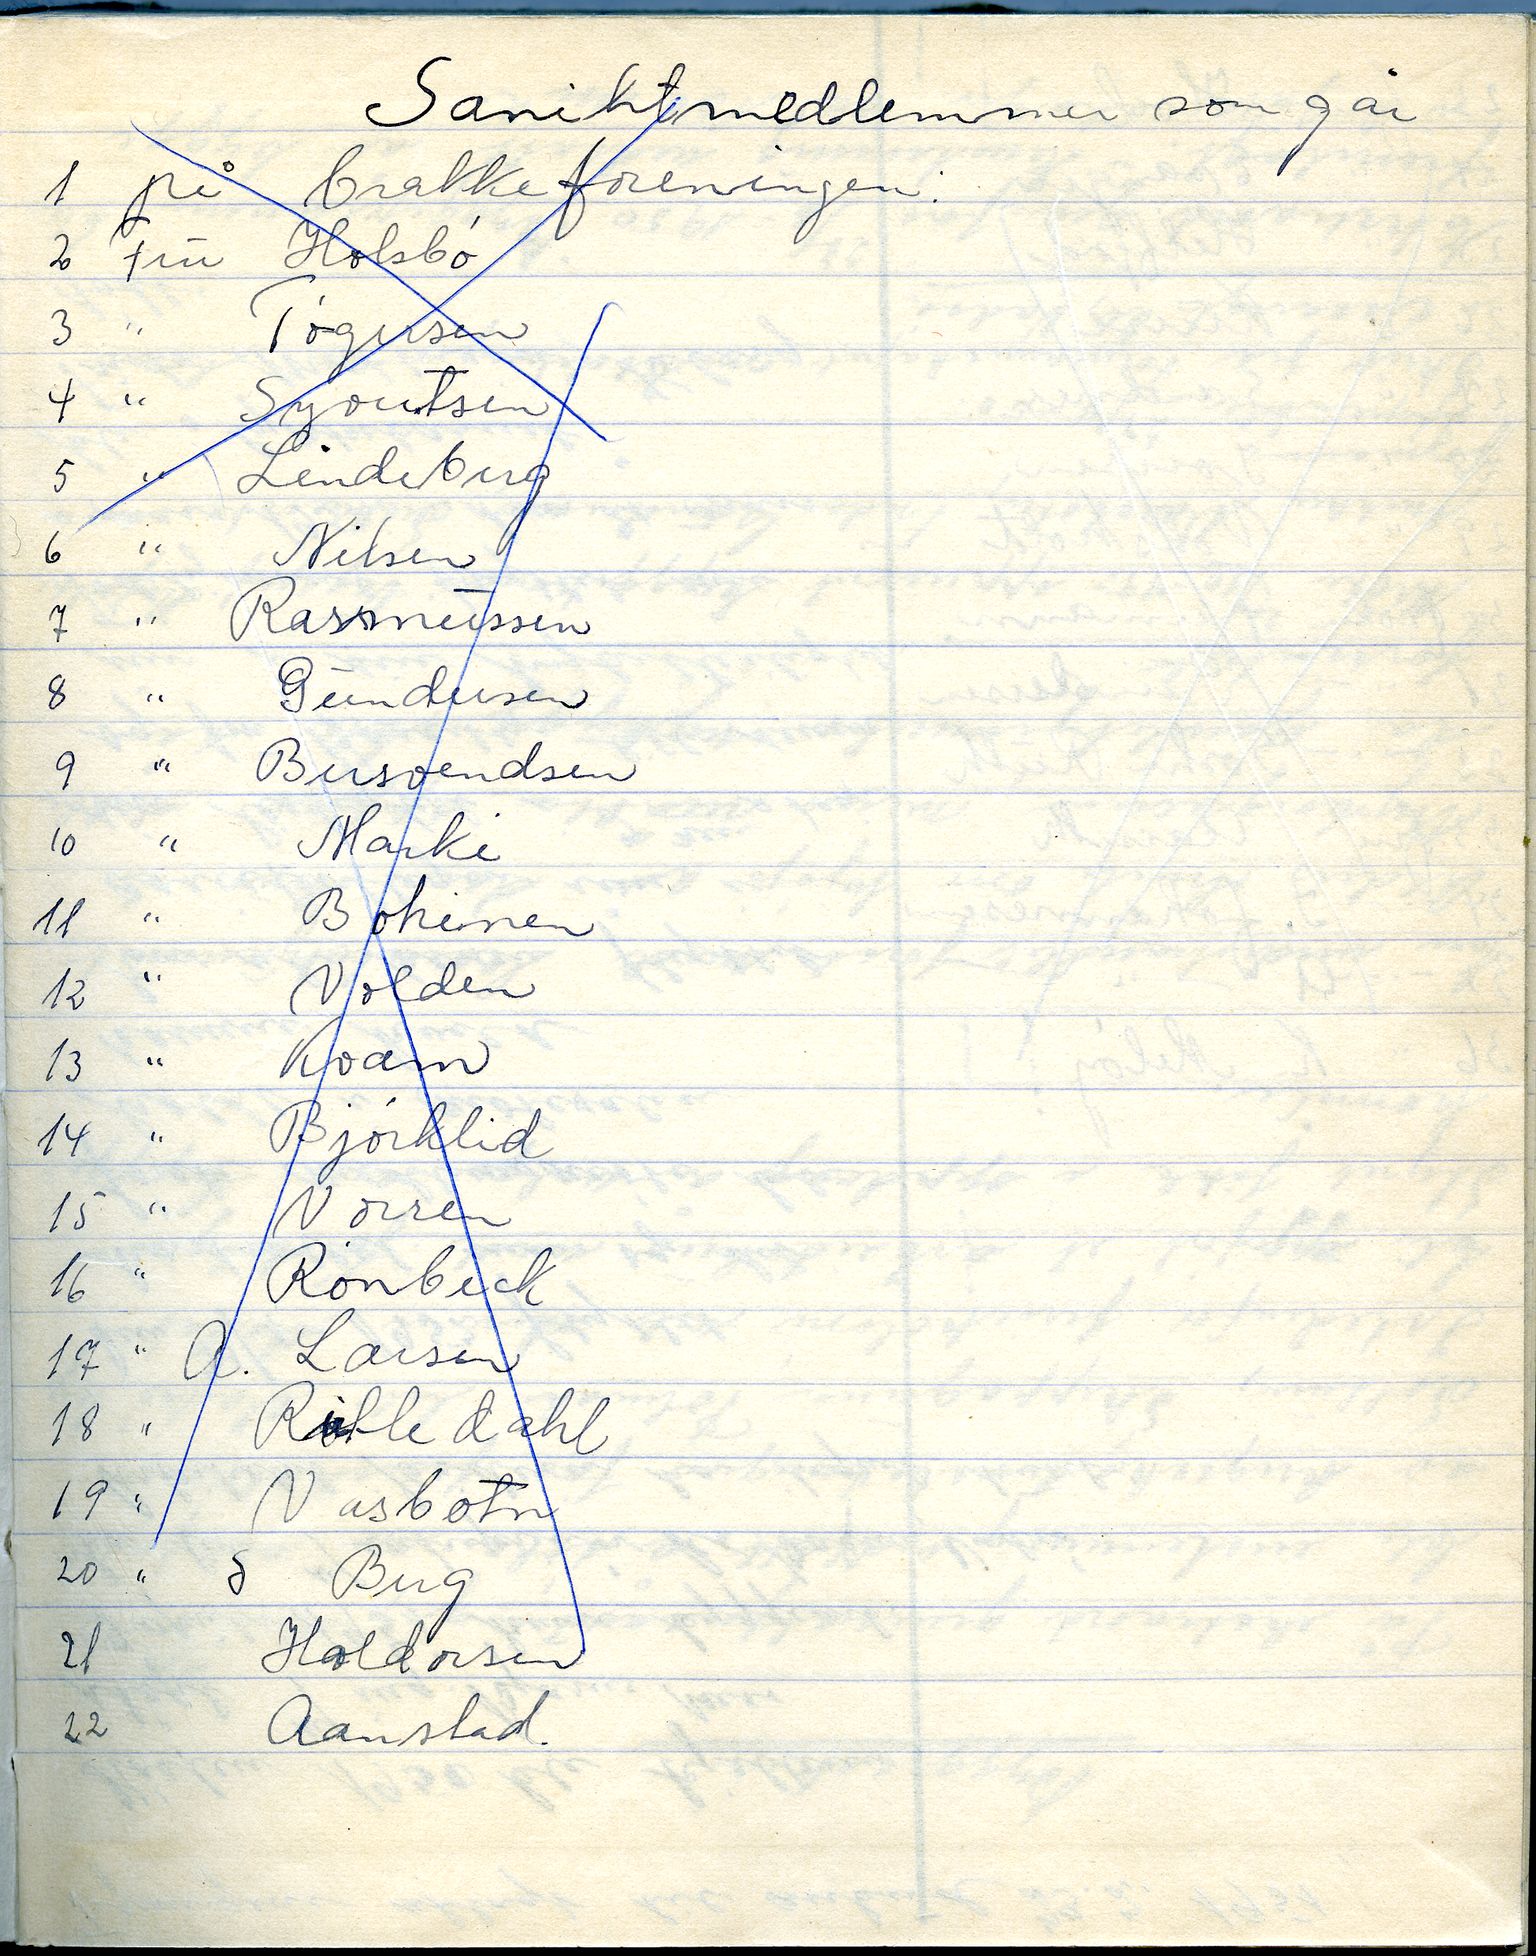 Sanitetmedlemmer som går
1 på brakkeforeningen.
2 Fru Holsbó
3 " Tógersen
4 " Syvertsen
5 " Lindeberg
6 " Nilsen
7 " Rasmussen
8 " Gundersen
9 " Bersvendsen
10 " Marki
11 " Bohinen
12 " Volden
13 " Kvam
14 " Bjórklid
15 " Vorren
16 " Rónbeck
17 " A. Larsen
18 "
19 " Vasbotn
20 " Berg
21 Haldorsen
22 Aanstad.